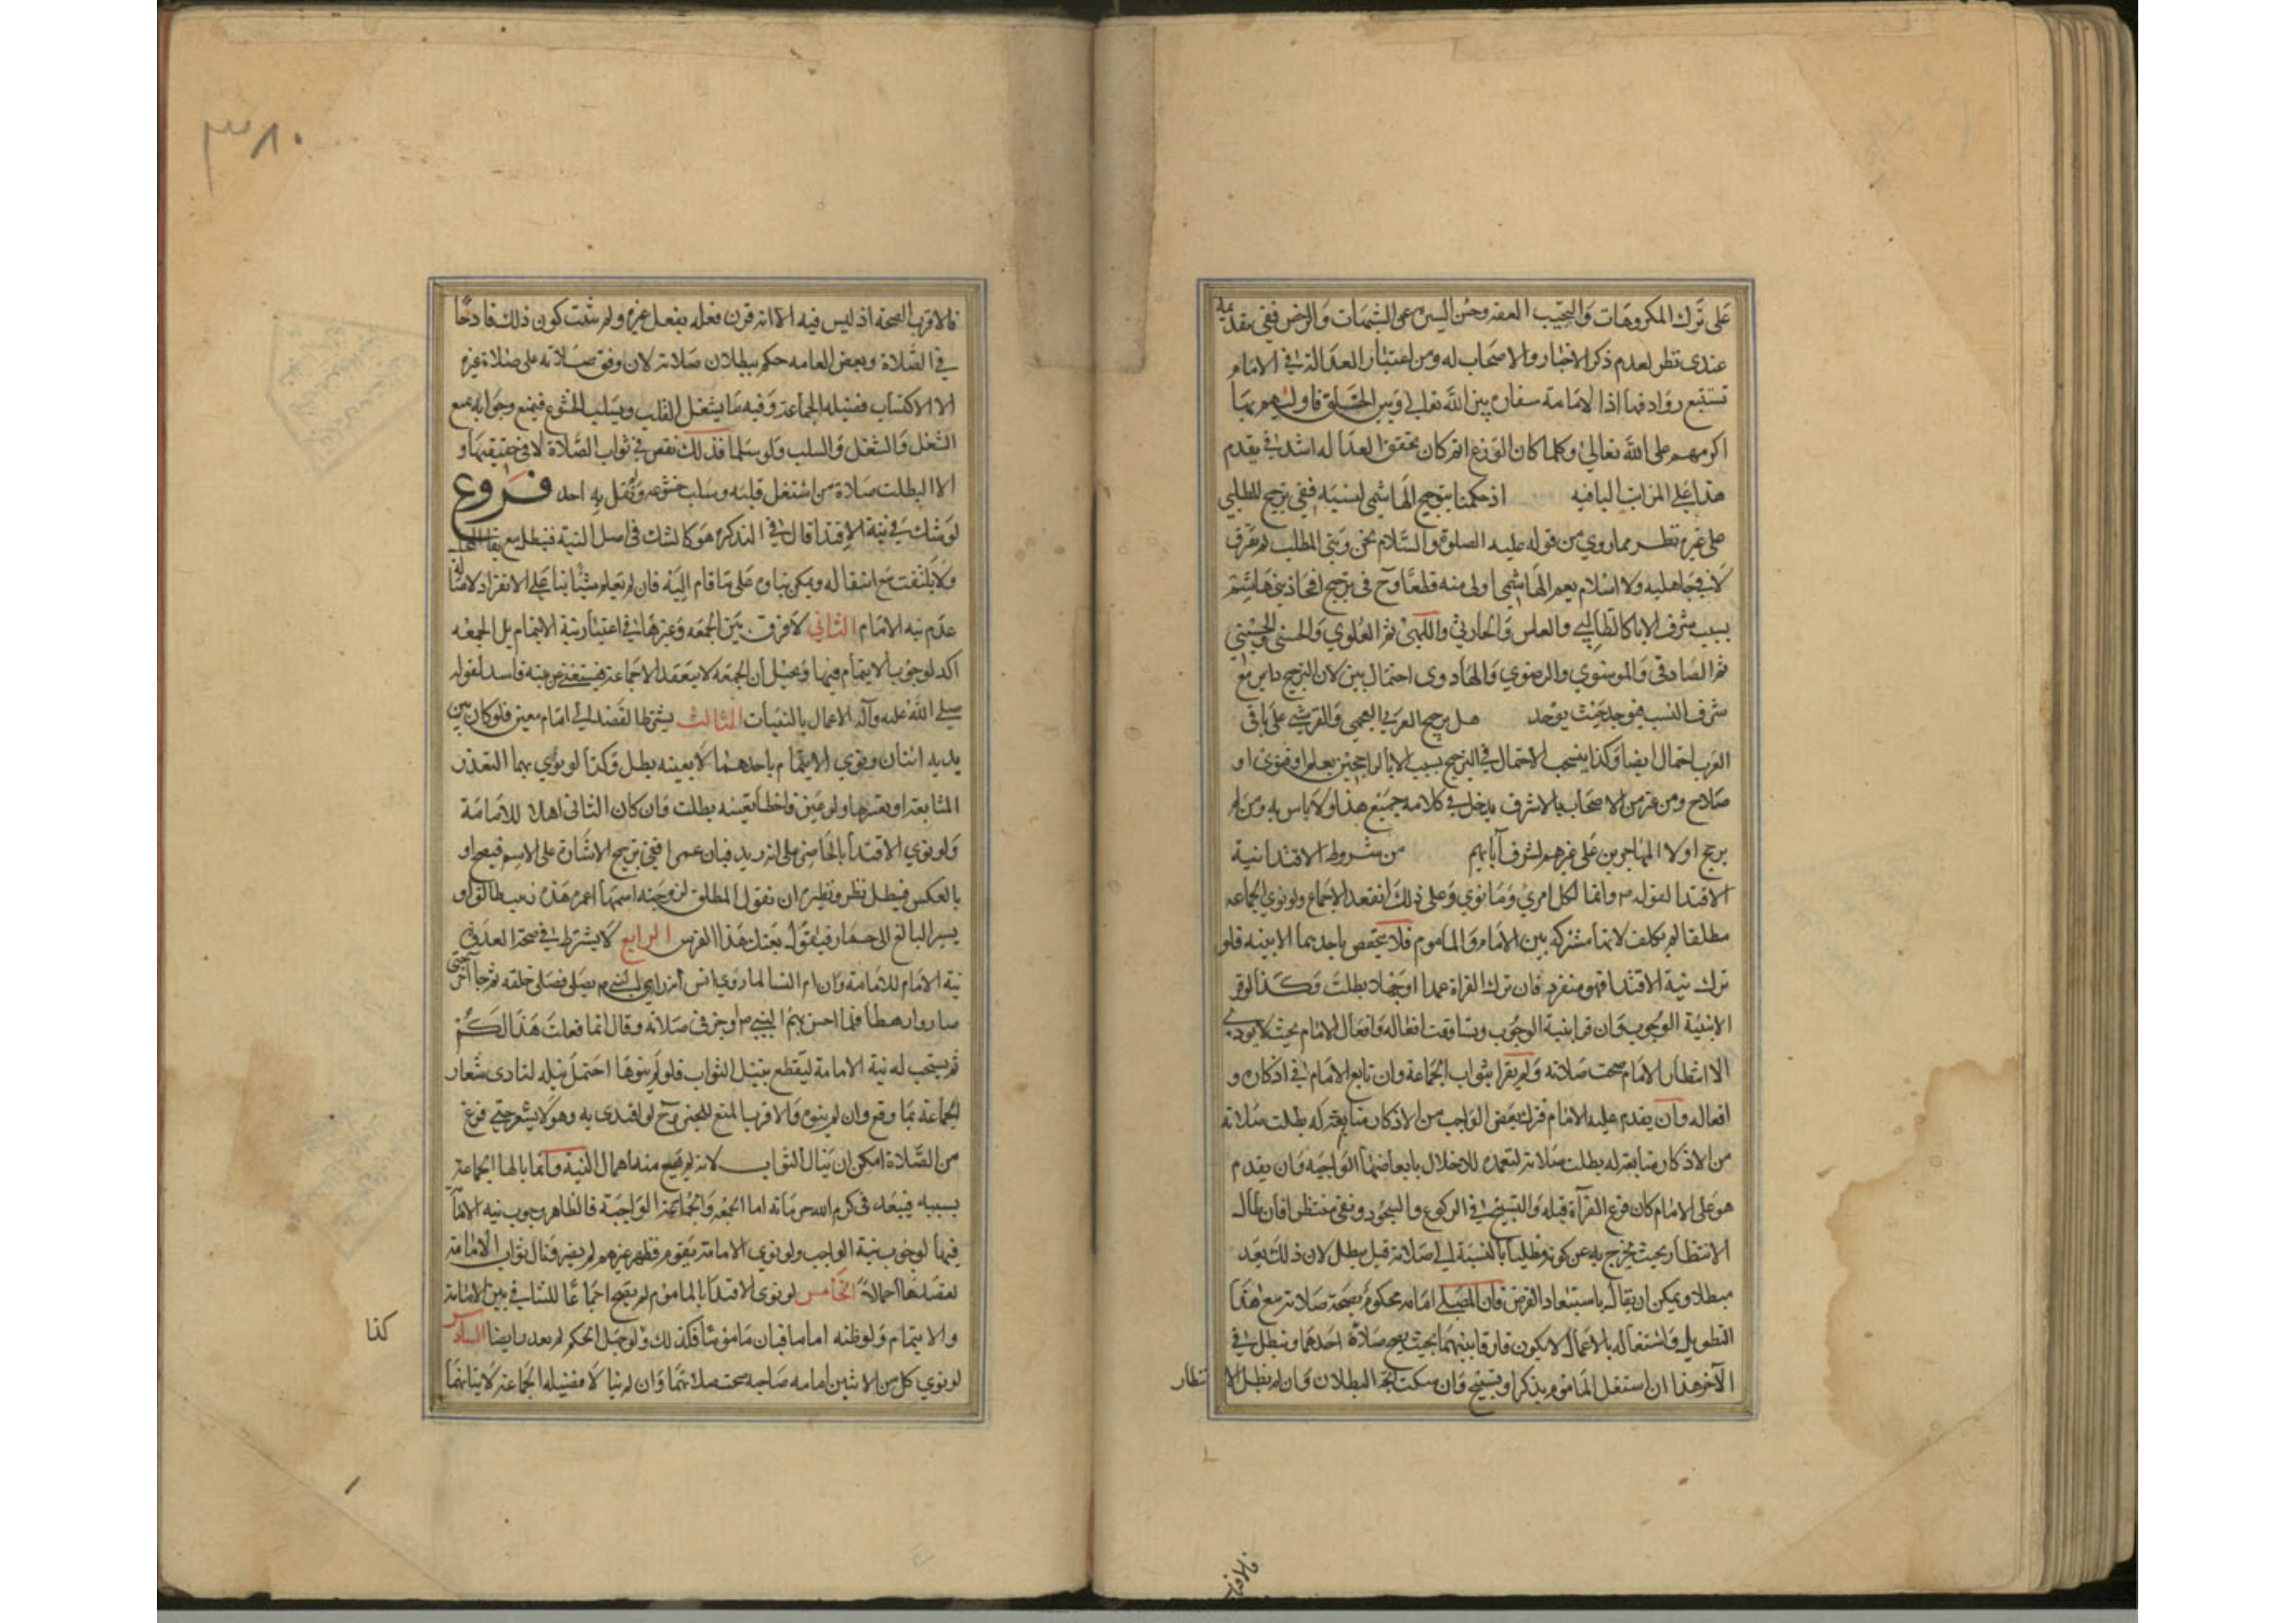 على ترك المكروهات والتجنب العفة وحسن السيرة عن الشبهات والرخص ففي تقديمه
عندى نظر لعدم ذكر الاخبار والاصحاب له ومن اعتبار العدالة في الامام
تستتبع روادفها اذا الامامة سفارة بين الله تعالى وبين الخلق فاولاهم بها
اكرمهم على الله تعالى وكلما كان الورع اتم كان تحقق العدالة اشد في تقدم
هذا على المراتب الباقيه اذ حكمنا بترجيح الهاشمي لنسبه ففي ترجيح المطلبي
على غيره نظر مما روي من قوله عليه الصلوة والسلام نحن وبني المطلب لم نفترق
لا في جاهلية ولا اسلام نعم الهاشمي اولى منه قطعا وح في ترجيح افخاذ بني هاشم
بسبب شرف الاباء كالطالبي والعباسي والحارثي واللهبي ثم العلوي والحسني والحسيني
ثم الصادقي والموسوي والرضوي والهادوى احتمال بين لان الترجيح داير مع
شرف النسب فيوجد حيث يوجد هل يرجح العربي العجمي والقرشي على باقي
العرب احتمال ايضا وكذا ينسحب الاحتمال في الترجيح بسبب الاباء الراجحين بعلم او تقوى او
صلاح ومن عبر من الاصحاب بالاشرف يدخل في كلامه جميع هذا ولا باس به ومن ثم
يرجح اولاد المهاجرين على غيرهم لشرف آبائهم من شروط الاقتدا نية
الاقتدا لقوله ص وانما لكل امرئ وما نوي وعلى ذلك انعقد الاجماع ولو نوي الجماعة
مطلقا لم يكف لانها مشتركه بين الامام والماموم فلا تختص باحدهما الا بنيه فلو
ترك نية الاقتدا فهو منفرد فان ترك القراة عمدا او جهلا بطلت وكذا لو قرا
لا بنية الوجوب وان قرا بنية الوجوب وتساوقت افعاله وافعال الامام بحيث لا يودي
الا انتظار الامام صحت صلاته ولم يفز بثواب الجماعة وان تابع الامام في اذكاره و
افعاله وان يقدم عليه الامام فترك بعض الواجب من الاذكار متابعة له بطلت صلاته
من الاذكار متابعة له بطلت صلاته لتعمده للاخلال بابعاضها الواجبه وان يقدم
هو على الامام كان فرغ القراة قبله والتسبيح في الركوع والسجود وبقي منتظرا فان طال
الانتظار بحيث يخرج به عن كونه مصليا بالنسبة الى صلاته قيل يبطل لان ذلك يعد
مبطلا ويمكن ان يقال باستبعاد الفرض فان المصلي امامه محكوم بصحة صلاته مع هذا
التطويل واشتغاله بالاعمال لا يكون فارقا بينهما بحيث يصح صلاة احدهما وتبطل في
الآخر هذا ان اشتغل الماموم بذكر او تسبيح وان سكت اتجه البطلان وان لم يطل الا
نتظار
فالاقرب
٣٨٠
فالاقرب الصحة اذ ليس فيه الا انه قرن فعله بفعل غيره ولم يثبت كون ذلك قادحا
في الصلاة وبعض العامه حكم ببطلان صلاته لان وقف صلاته على صلاة غيره
لا لاكتساب فضيله الجماعة وفيه ما يشغل القلب ويسلب الخشوع فيمنع وجوابه بمنع
الشغل والشغل والسلب ولو سلما فذلك نقص في ثواب الصلاة لا في حقيقتها و
الا لبطلت صلاة من اشتغل قلبه وسلب خشوعه ولم يقل به احد فروع
لو شك في نية الاقتدا قال في التذكره هو كالشك في اصل النية فيبطل مع بقاء المحل
ولا يلتفت مع انتقاله ويمكن بناوه على ما قام اليه فان لم يعلم شيئا بنا على الانفراد لاصالة
عدم نيه الائتمام الثاني لا فرق بين الجمعه وغيرها في اعتبار نية الائتمام بل الجمعه
اكد لوجوب الايتمام فيها وتخيل ان الجمعة لا ينعقد الا جماعة فيستغني عن نيته فاسد لقوله
صلى الله عليه وآله الاعمال بالنيات الثالث يشترط القصد الى امام معين فلو كان بين
يديه اثنان ونوي الايتمام باحدهما لا بعينه بطل وكذا لو نوي بهما التعذر
المتابعة او تعسرها ولو عين فاخطا تعينه بطلت وان كان الثاني اهلا للامامة
ولو نوي الاقتدا بالحاضر على انه زيد فبان عمرا ففي ترجيح الاشارة على الاسم فيصح او
بالعكس فيبطل نظر ونظيره ان تقول المطلق لزوجته اسمها عمره هذه زينب طالق او
يشير البائع الى حمار فيقول بعتك هذا الفرس الرابع لا يشترط في صحة القدوة
نية الامام للامامة وان ام النسا لما روي انس انه راي النبي ص يصلى فصلى خلفه ثم جا آخر حتى
صاروا رهطا فلما احس بهم النبي ص اوجز في صلاته وقال انما فعلت هذا لكم
ثم يستحب له نية الامامة ليقطع بنيل الثواب فلو لم ينوها احتمل نيله لتادى شعار
الجماعة بما وقع وان لم ينوه والاقرب المنع للخبر وح لو اقتدى به وهو لا يشعر حتى فرغ
من الصلاة امكن ان ينال الثواب لانه لم يقع منه اهمال النية وانما نالها الجماعة
بسببه فيبعد في كرم الله حرمانه اما الجمعه والجماعة الواجبة فالظاهر وجوب نيه الامامة
فيها لوجوب نية الواجب ولو نوي الامامة بقوم فظهر غيرهم لم يضر ونال ثواب الامامة
لقصدها اجمالا الخامس لو نوى الاقتدا بالماموم لم يصح اجماعا للتنافي بين الامامة
والايتمام ولو ظنه اماما فبان ماموما فكذلك ولو جهل الحكم لم يعذر ايضا السادس
لو نوي كل من الاثنين امامه صاحبه صحت صلاتهما وان لم ينالا فضيله الجماعة لاتيانهما
كذا